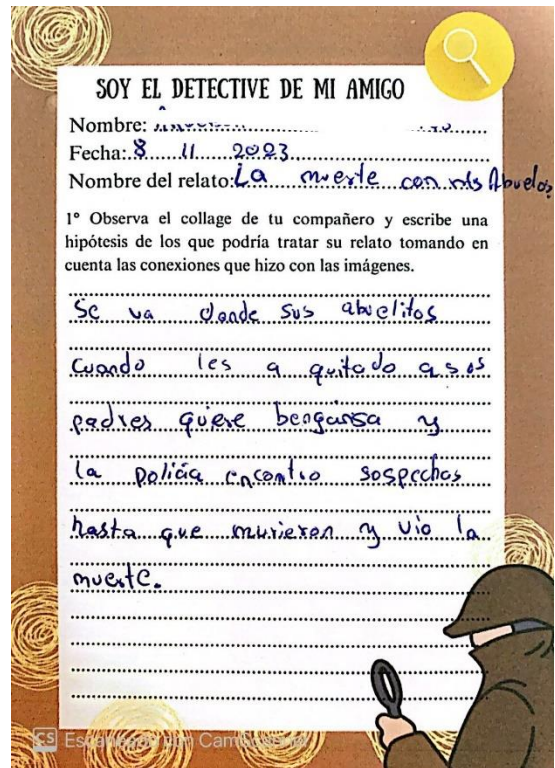 SOY EL DETECTIVE DE MI AMIGO
Nombre:
Fecha: 8 11 2023
Nombre del relato: La muerte con mis Abuelos
1º Observa el collage de tu compañero y escribe una
hipótesis de los que podría tratar su relato tomando en
cuenta las conexiones que hizo con las imágenes.
Se va donde sus abuelitos
cuando les a quitado a sus
padres quiere bengansa y
la policia encontro sospechas
hasta que murieron y vio la
muerte.
CS Escaneado con CamScanner